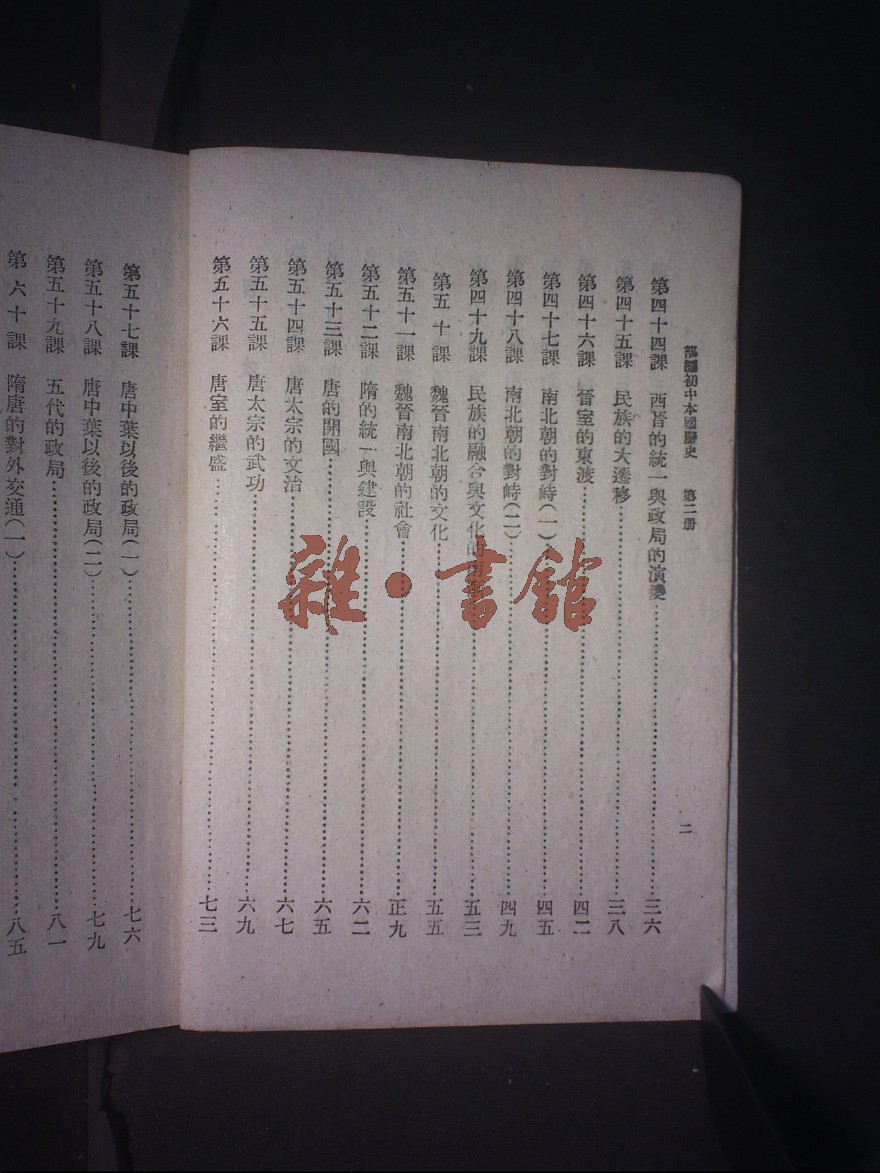 部編初中本國歷史 第二册 二
第四十四課 西晉的統一與政局的演變 三六
第四十五課 民族的大遷移 三八
第四十六課 晉室的東渡 四二
第四十七課 南北朝的對峙(一) 四五
第四十八課 南北朝的對峙(二) 四九
第四十九課 民族的融合與文化的 五三
第五十課 魏晉南北朝的文化 五五
第五十一課 魏晉南北朝的社會 正九
第五十二課 隋的統一與建設 六二
第五十三課 唐的開國 六五
第五十四課 唐太宗的文治 六七
第五十五課 唐太宗的武功 六九
第五十六課 唐室的繼盛 七三
第五十七課 唐中葉以後的政局(一) 七六
第五十八課 唐中葉以後的政局(二) 七九
第五十九課 五代的政局 八一
第六十課 隋唐的對外交通(一) 八五
雜·書館